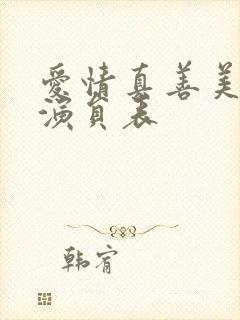 愛情真善美
演員表
韩宥